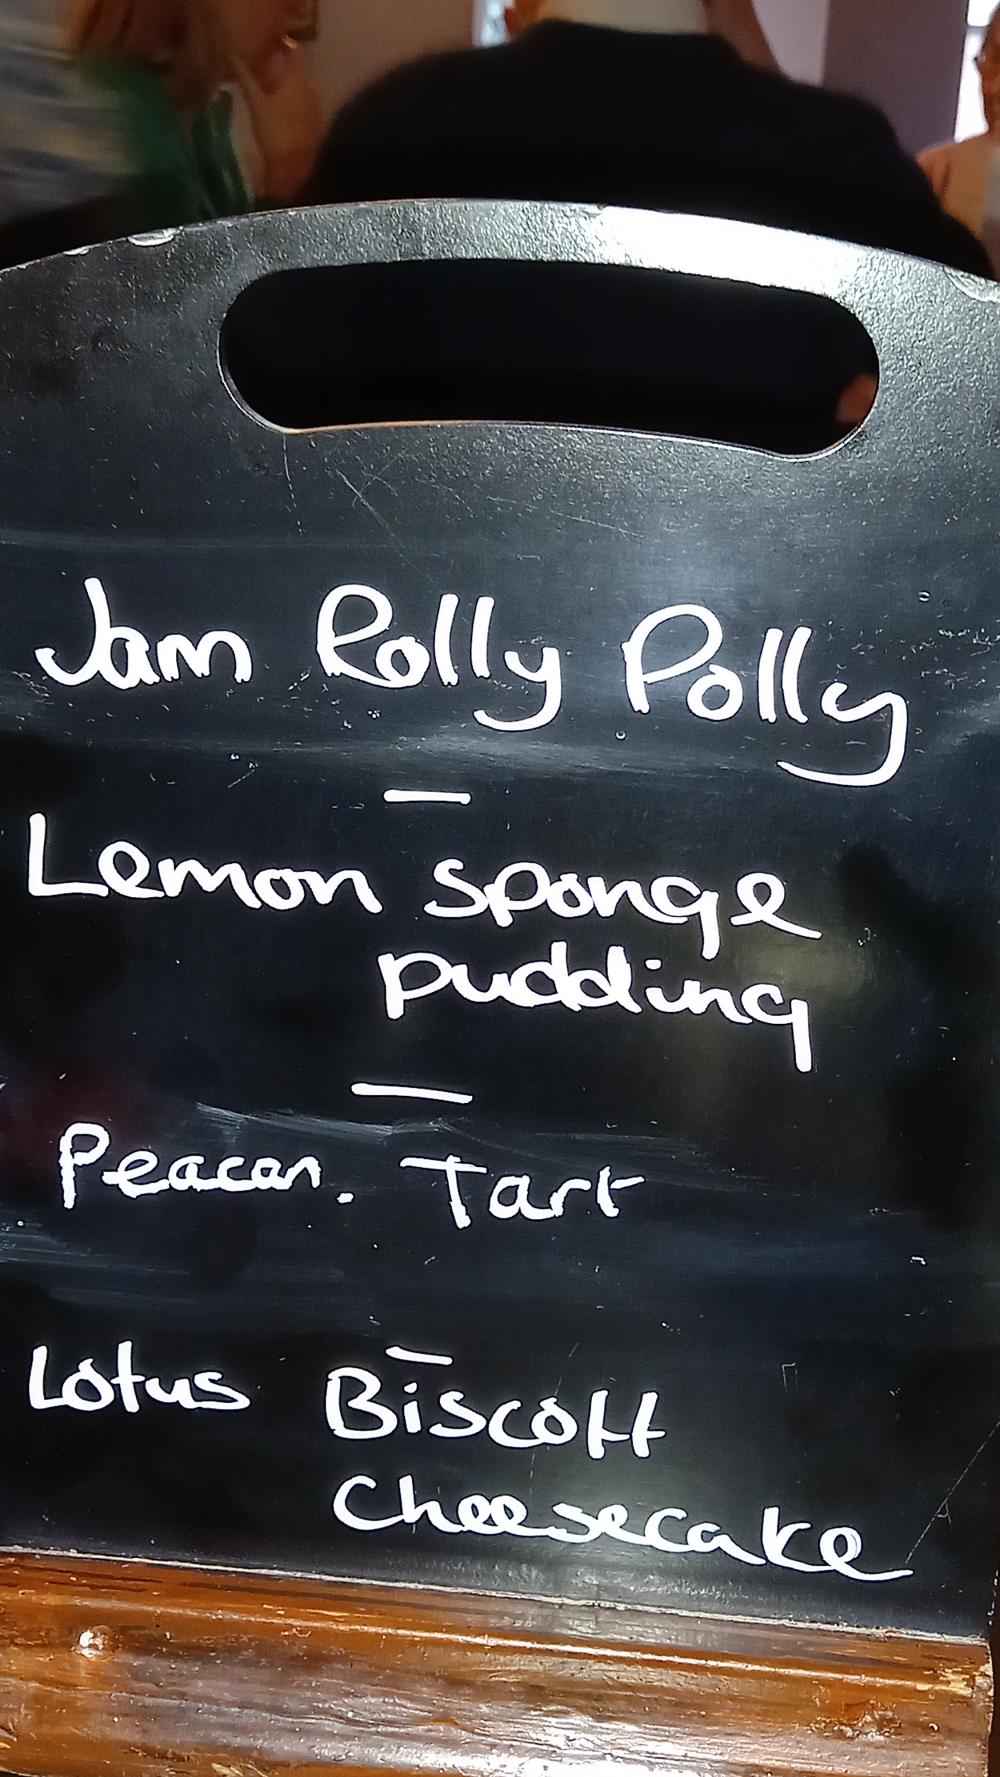 Jam Rolly Polly
—
Lemon sponge
pudding
—
Peacan. Tart
—
Lotus Biscott
Cheesecake